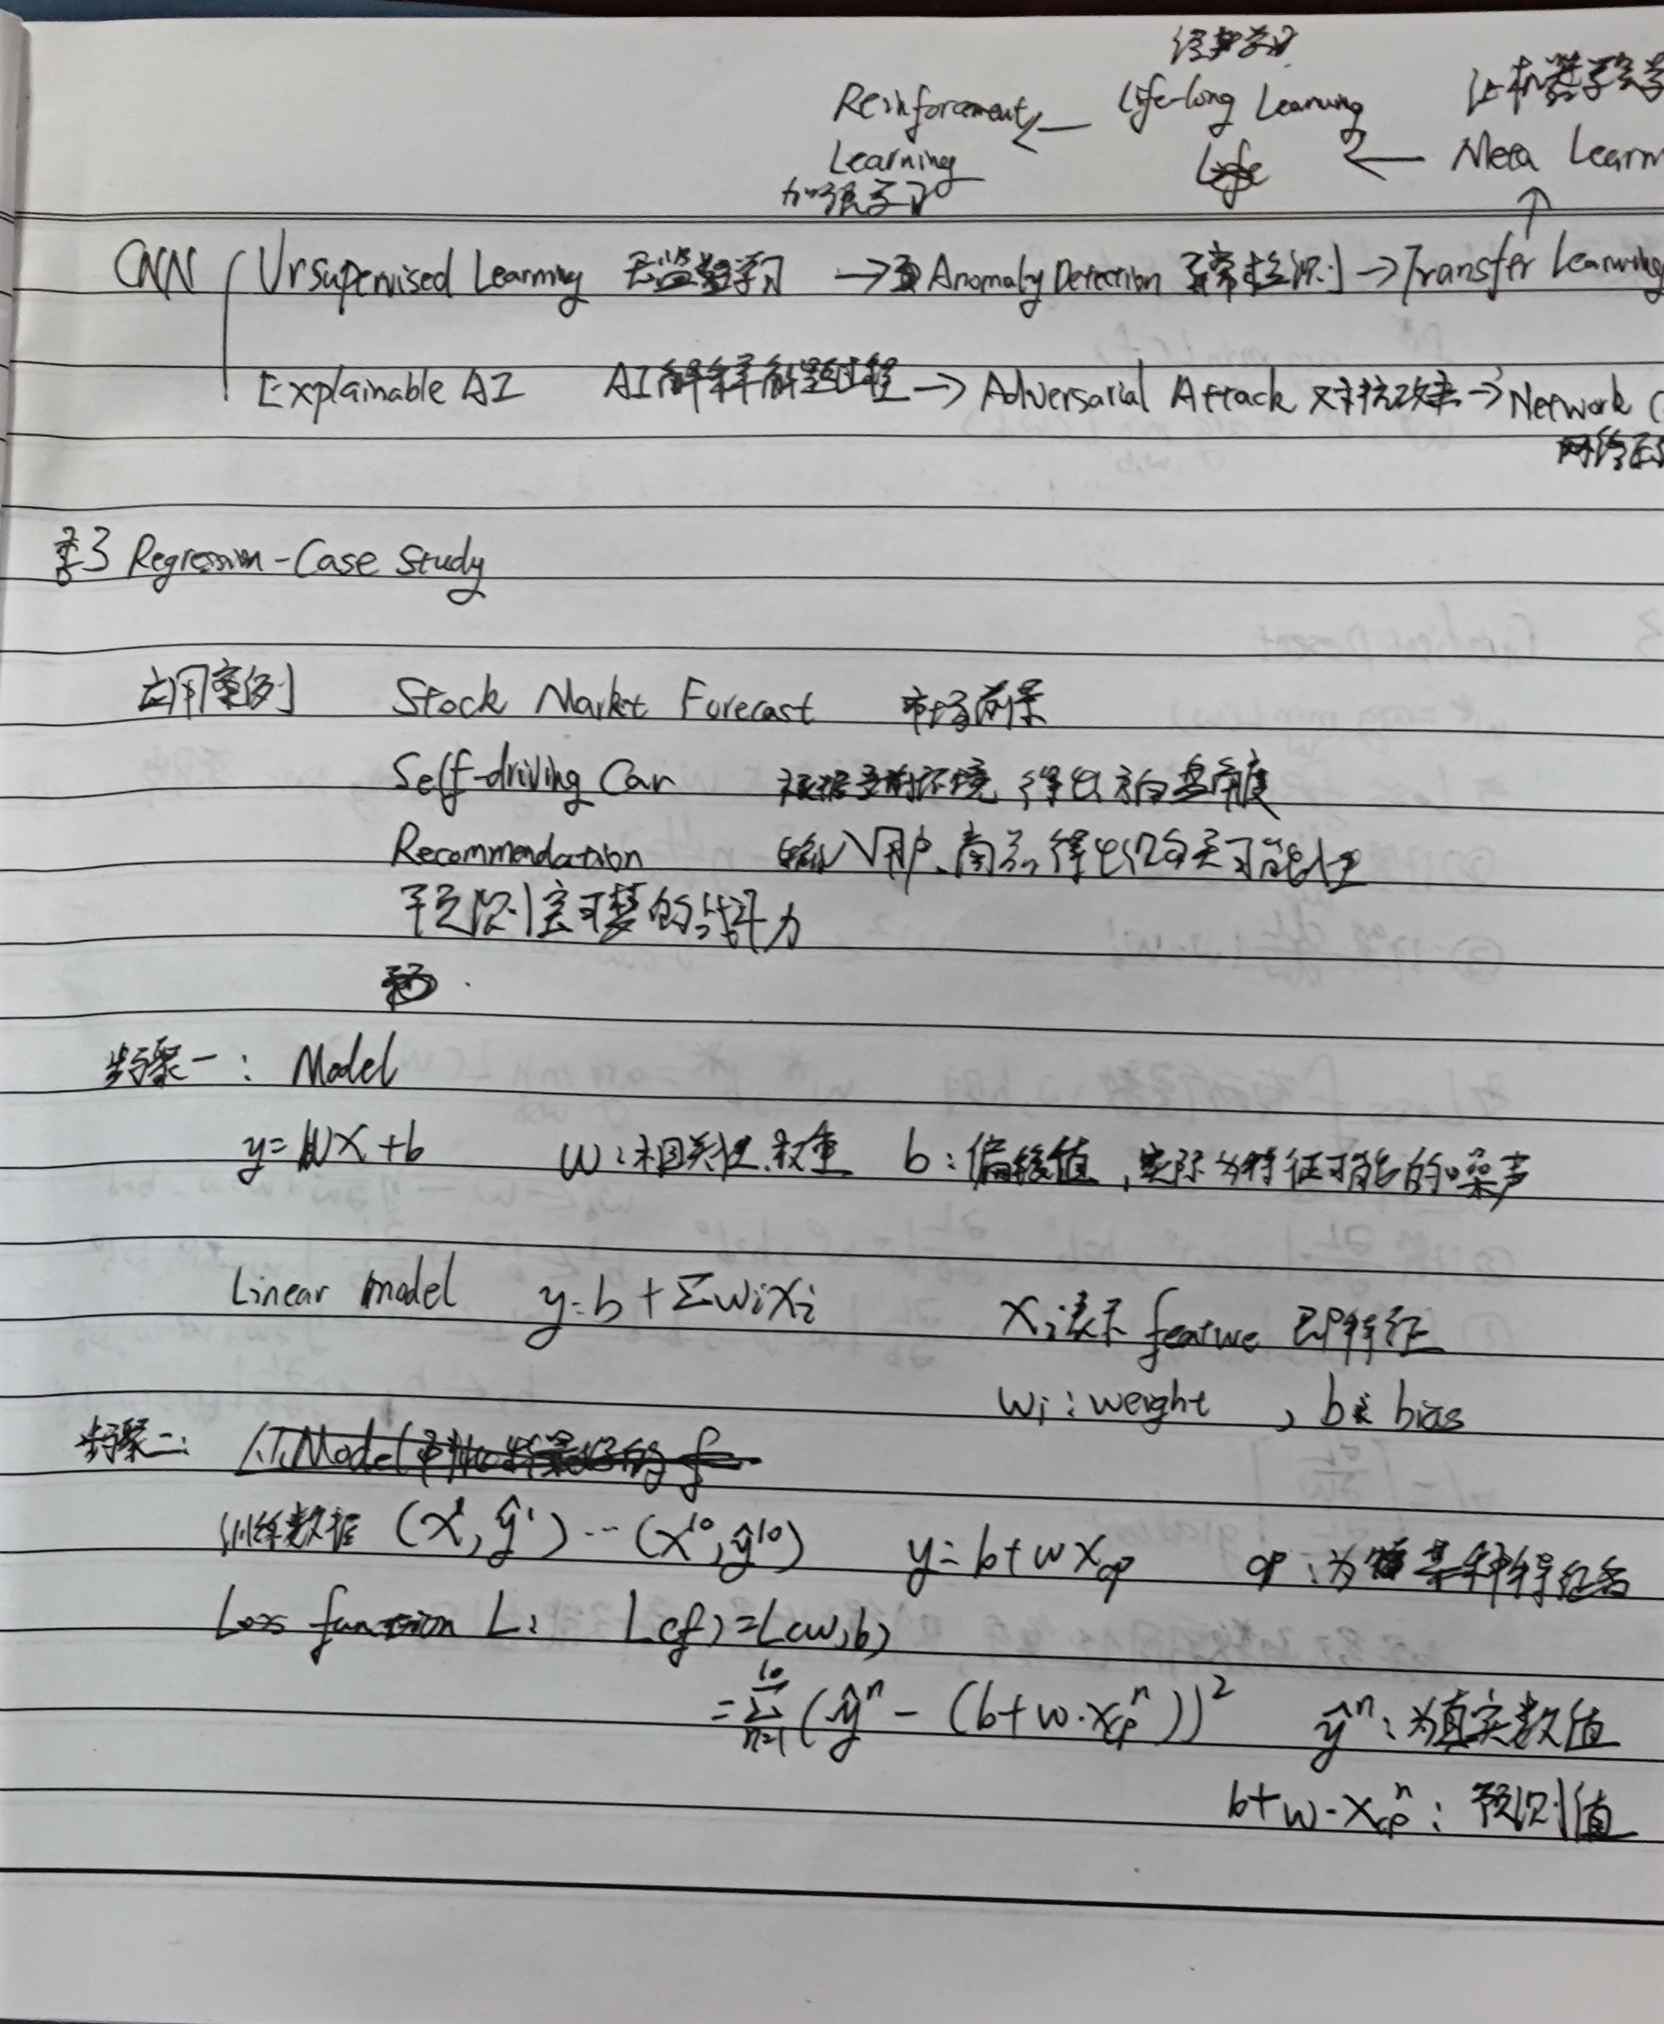 终身学习 让机器学会学
Reinforcement ← Life-long Learning ← Meta Learn
Learning
加强学习
CNN Unsupervised Learning 无监督学习 → Anomaly Detection 异常检测 → Transfer Learning
Explainable AI AI解释解题过程 → Adversarial Attack 对抗攻击 → Network C
网络压
3 Regression-Case Study
应用案例 Stock Market Forecast 市场前景
Self-driving Car 根据当前环境 得出方向盘角度
Recommendation 输入用户、商品 得出购买可能性
预测宝可梦的战斗力
步骤一: Model
y=wx+b w:相关性、权重 b:偏移值,实际为特征可能的噪声
Linear model y=b+Σwixi xi表示feature 即特征
wi:weight , b:bias
步骤二:
训练数据 (x¹,ŷ¹)…(x¹⁰,ŷ¹⁰) y=b+wxcp cp:为某种特征
Loss function L: L(f)=L(w,b)
=Σ¹⁰ₙ₌₁(ŷⁿ-(b+w·xcpⁿ))² ŷⁿ:为真实数值
b+w·xcpⁿ:预测值